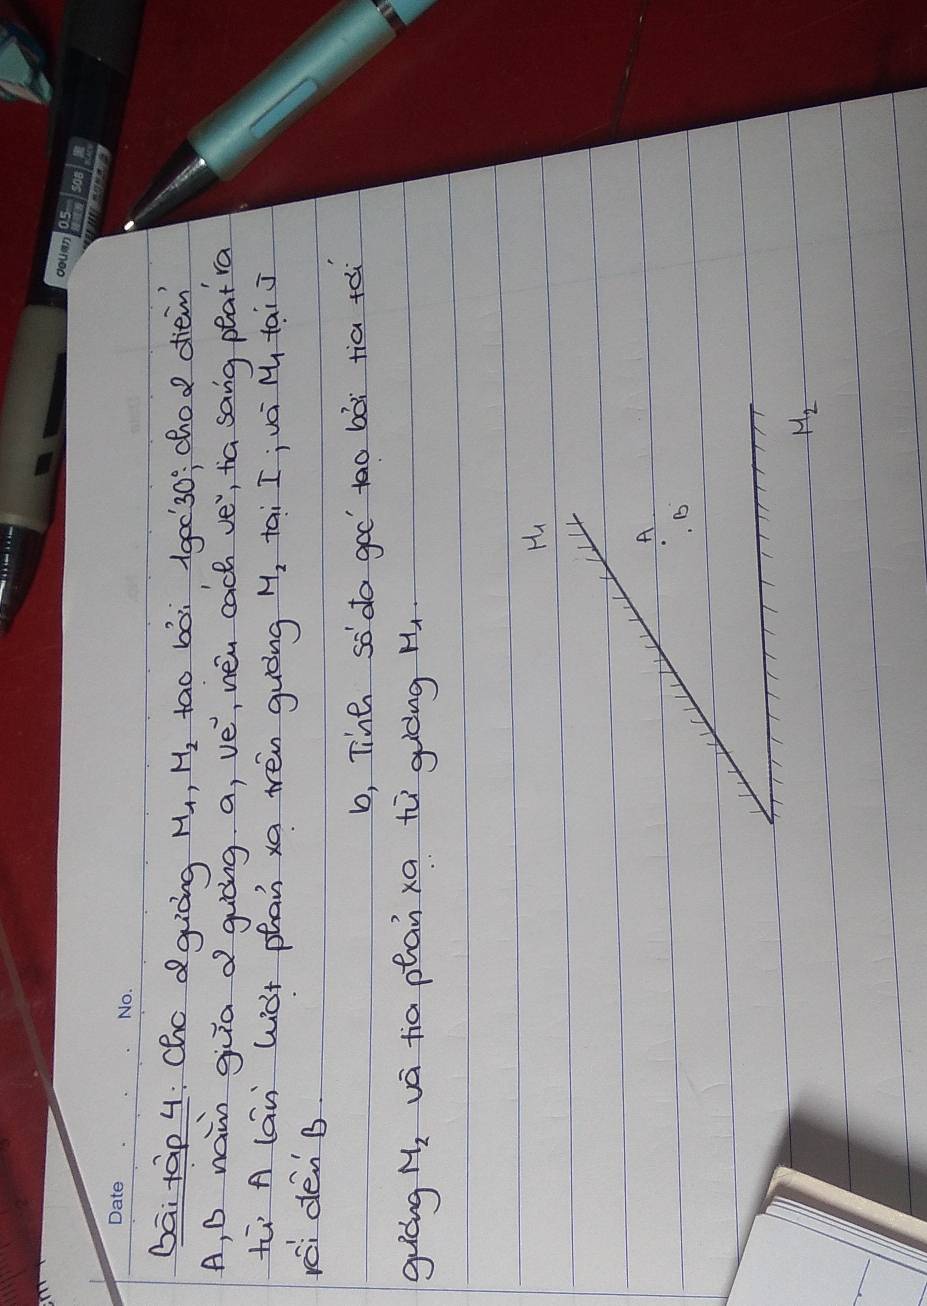 Date
No.
Bài tập 4: Cho 2 gương M₁, M₂ tạo bởi 1 góc 30°; cho 2 điểm
A, B nằm giữa 2 gương. a, vẽ, nêu cách vẽ, tia sáng phát ra
từ A lần lượt phản xạ trên gương M₂ tại I, và M₁ tại J
rồi đến B.
b, Tính số đo góc tạo bởi tia tới
gương M₂ và tia phản xạ từ gương M₁.
M₁
A
B
M₂
deli 0.5mm S08 黑